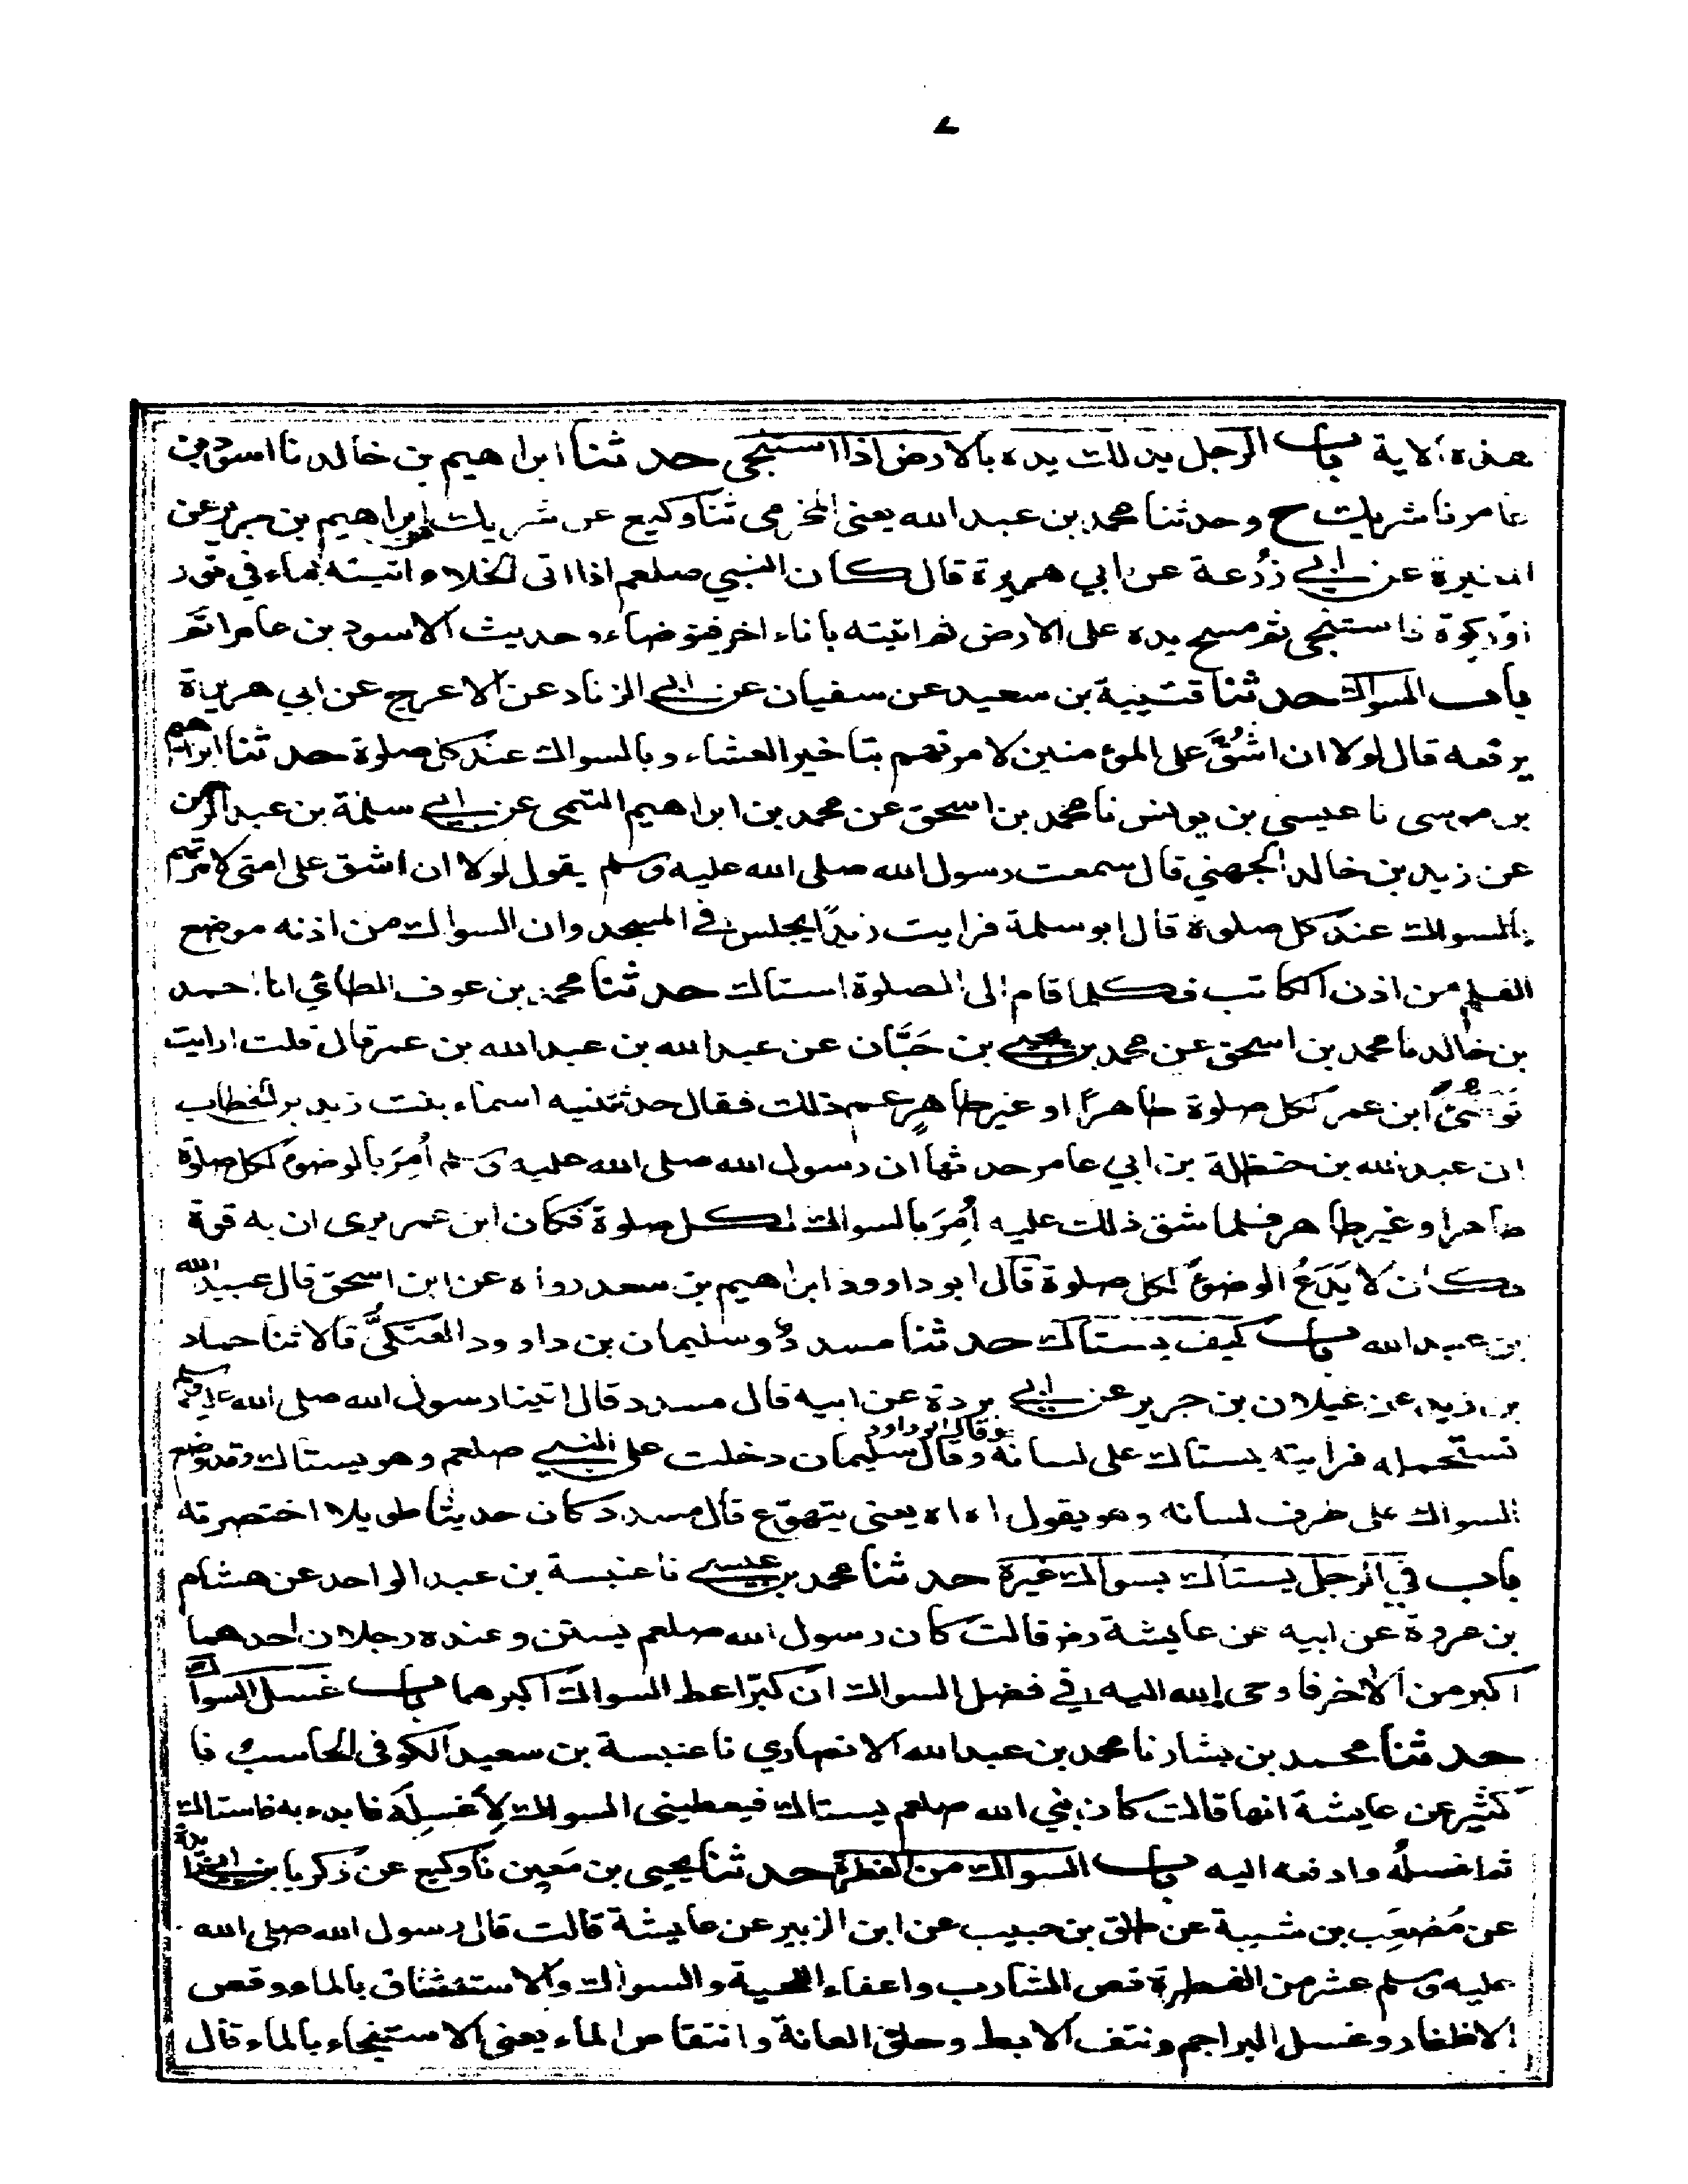 هذه الاية باب الرجل يدلك يده بالارض اذا استنجى حدثنا ابراهيم بن خالد نا اسود بن
عامر نا شريك ح وحدثنا محمد بن عبد الله يعنى المخرمى ثنا وكيع عن شريك عن ابراهيم بن جرير عن
المغيرة عن ابي زرعة عن ابي هريرة قال كان النبي صلعم اذا اتى الخلاء اتيته بماء في تور
او ركوة فاستنجى ثم مسح يده على الارض ثم اتيته باناء اخر فتوضاء وحديث الاسود بن عامر اتم
باب السواك حدثنا قتيبة بن سعيد عن سفيان عن ابي الزناد عن الاعرج عن ابي هريرة
يرفعه قال لولا ان اشُقَّ على المؤمنين لامرتهم بتاخير العشاء وبالسواك عند كل صلوة حدثنا ابراهيم
بن موسى نا عيسى بن يونس نا محمد بن اسحق عن محمد بن ابراهيم التيمى عن ابي سلمة بن عبد الرحمن
عن زيد بن خالد الجهني قال سمعت رسول الله صلى الله عليه وسلم يقول لولا ان اشق على امتى لامرتهم
بالسواك عند كل صلوة قال ابو سلمة فرايت زيدًا يجلس في المسجد وان السواك من اذنه موضع
القلم من اذن الكاتب فكلما قام الى الصلوة استاك حدثنا محمد بن عوف الطائي انا احمد
بن خالد نا محمد بن اسحق عن محمد بن يحيى بن حَبَّان عن عبد الله بن عبد الله بن عمر قال قلت ارايت
تَوَضُّئَ ابن عمر لكل صلوة طاهرًا او غير طاهرٍ عم ذلك فقال حدثتنيه اسماء بنت زيد بن الخطاب
ان عبد الله بن حنظلة بن ابي عامر حدثها ان رسول الله صلى الله عليه وسلم اُمِرَ بالوضوء لكل صلوة
طاهرا وغير طاهر فلما شق ذلك عليه اُمِرَ بالسواك لكل صلوة فكان ابن عمر يرى ان به قوة
فكان لا يَدَعُ الوضوءَ لكل صلوة قال ابو داوود ابراهيم بن سعد رواه عن ابن اسحق قال عبيد الله
بن عبد الله باب كيف يستاك حدثنا مسددٌ وسليمان بن داوود العتكىُّ قالا ثنا حماد
بن زيد عن غيلان بن جرير عن ابي بردة عن ابيه قال مسدد قال اتينا رسول الله صلى الله عليه وسلم
قال ابو داود
نستحمله فرايته يستاك على لسانه وقال سليمان دخلت على النبي صلعم وهو يستاك وقد وضع
السواك على طرف لسانه وهو يقول اه اه يعنى يتهوع قال مسدد كان حديثا طويلا اختصرته
باب في الرجل يستاك بسواك غيره حدثنا محمد بن عيسى نا عنبسة بن عبد الواحد عن هشام
بن عروة عن ابيه عن عايشة رضـ قالت كان رسول الله صلعم يستن وعنده رجلان احدهما
اكبر من الاخر فاوحى الله اليه في فضل السواك ان كبّر اعط السواك اكبرهما باب غسل السواك
حدثنا محمد بن بشار نا محمد بن عبد الله الانصاري نا عنبسة بن سعيد الكوفى الحاسبُ نا
كثير عن عايشة انها قالت كان نبي الله صلعم يستاك فيعطينى السواك لِأَغسِلَهُ فابدء به فاستاك
ثم اغسله وادفعه اليه باب السواك من الفطرة حدثنا يحيى بن مَعِين نا وكيع عن زكريا بن ابي زائدة
عن مُصْعَب بن شيبة عن طلق بن حبيب عن ابن الزبير عن عايشة قالت قال رسول الله صلى الله
عليه وسلم عشر من الفطرة قص الشارب واعفاء اللحية والسواك والاستنشاق بالماء وقص
الاظفار وغسل البراجم ونتف الابط وحلق العانة وانتقاص الماء يعني الاستنجاء بالماء قال